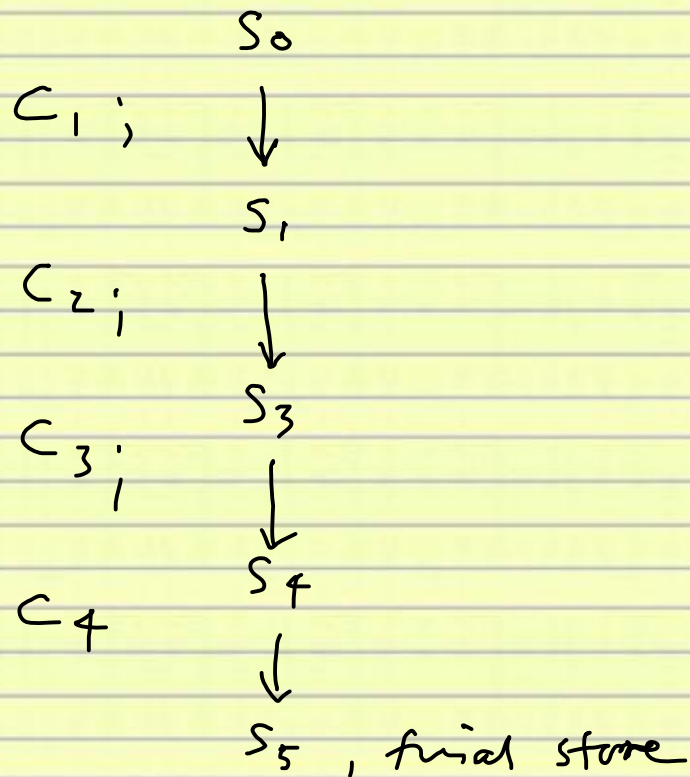 S₀
C₁ ;
S₁
C₂ ;
S₃
C₃ ;
S₄
C₄
S₅ , final store